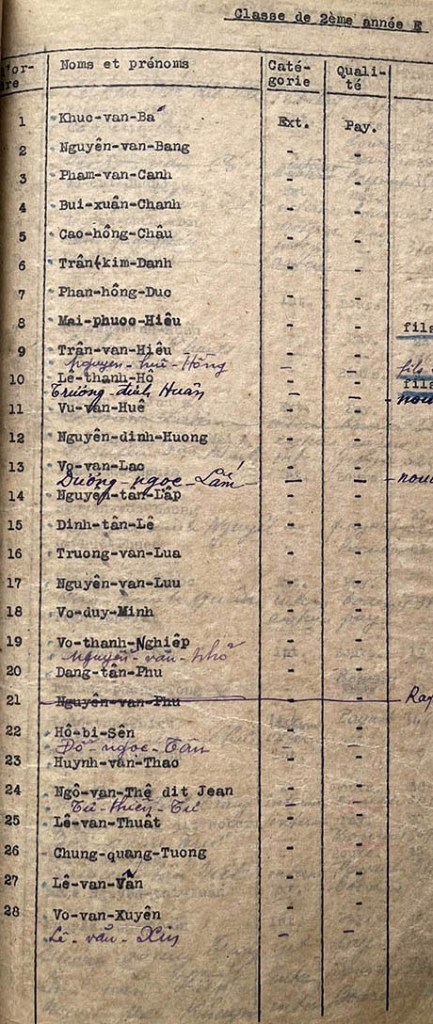 Classe de 2ème année E
l'or-
re Noms et prénoms Caté-
gorie Quali-
té
1 Khuc-van-Ba Ext. Pay.
2 Nguyên-van-Bang - -
3 Pham-van-Canh - -
4 Bui-xuân-Chanh - -
5 Cao-hông-Châu - -
6 Trân-kim-Danh - -
7 Phan-hông-Duc - -
8 Mai-phuoc-Hiêu - - fils
9 Trân-van-Hiêu - -
Nguyen-huê-Hông - - fils
10 Lê-thanh-Hô - - fils
Trường-đình Huân - - nou
11 Vu-van-Huê - -
12 Nguyên-dinh-Huong - -
13 Vo-van-Lao - -
Dương-ngọc-Lắm - - nou
14 Nguyên-tân-Lâp - -
15 Dinh-tân-Lê - -
16 Truong-van-Lua - -
17 Nguyên-van-Luu - -
18 Vo-duy-Minh - -
19 Vo-thanh-Nghiêp - -
Nguyễn-văn-Nhỏ
20 Dang-tân-Phu - -
21 Nguyên-van-Phu Ray
22 Hô-bi-Sên - -
Đỗ-ngọc-Tân - -
23 Huynh-van-Thao - -
24 Ngô-van-Thê dit Jean - -
Từ-thiện-Tứ - -
25 Lê-van-Thuât - -
26 Chung-quang-Tuong - -
27 Lê-van-Vân - -
28 Vo-van-Xuyên - -
Lê-văn-Xin - -